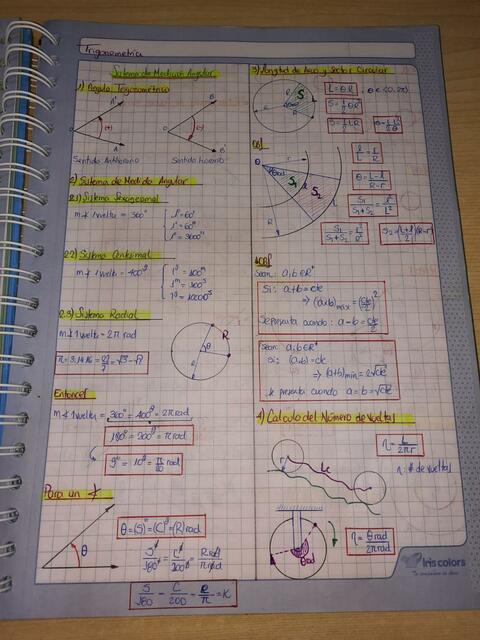 Trigonometría
Sistema de Medición Angular
1) Ángulo Trigonométrico
A'
B
O
O
A
B'
Sentido Antihorario
Sentido horario
2) Sistema de Medida Angular
2.1) Sistema Sexagesimal
m∢1vuelta = 360°
1° = 60'
1' = 60''
1° = 3600''
2.2) Sistema Centesimal
m∢1vuelta = 400ᵍ
1ᵍ = 100ᵐ
1ᵐ = 100ˢ
1ᵍ = 10000ˢ
2.3) Sistema Radial
m∢1vuelta = 2π rad
R
θ
Entonces
m∢1vuelta = 360° = 400ᵍ = 2π rad
180° = 200ᵍ = π rad
9° = 10ᵍ = π/20 rad
Para un ∢
θ
θ = (S)° = (C)ᵍ = (R) rad
S°/180° = Cᵍ/200ᵍ = R rad/π rad
S/180 = C/200 = R/π = K
3) Longitud de Arco y Sector Circular
L = θR ; θ ∈ <0, 2π]
S = 1/2 θR²
S = 1/2 LR
S
R
θ rad
S₁
S₂
r
R
l/L = r/R
θ = L-l/R-r
S₁/S₁+S₂ = l²/L²
S₁/S₁+S₂ = r²/R²
S₂ = (L+l/2)(R-r)
Sean: a,b ∈ R⁺
Si: a+b = cte
⇒ (a×b)máx = (cte/2)²
Se presenta cuando: a = b = cte/2
Sean: a,b ∈ R⁺
Si: (a.b) = cte
⇒ (a+b)mín = 2√cte
se presenta cuando a = b = √cte
4) Calculo del Número de Vueltas
η = L/2πr
η: # de vueltas
θ rad
η = θ rad/2π rad
Iris colors